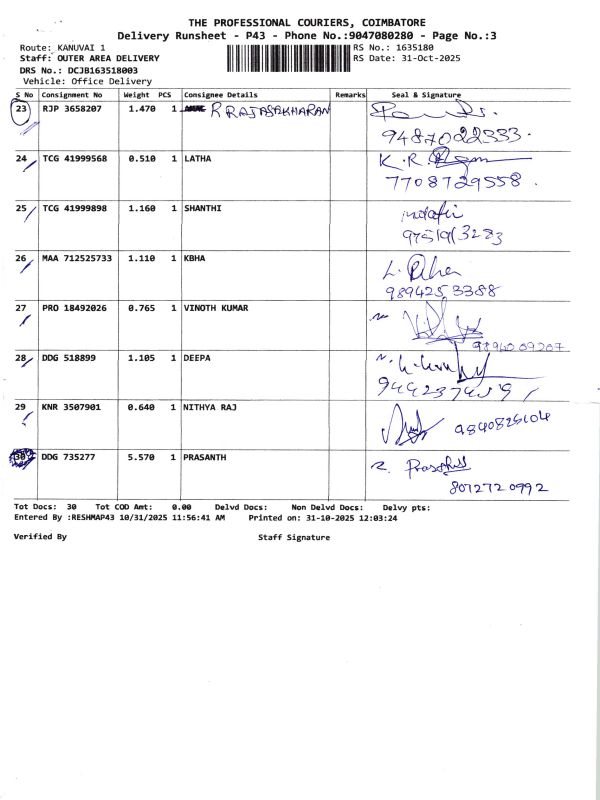 THE PROFESSIONAL COURIERS, COIMBATORE
Delivery Runsheet - P43 - Phone No.:9047080280 - Page No.:3
Route: KANUVAI 1 RS No.: 1635180
Staff: OUTER AREA DELIVERY RS Date: 31-Oct-2025
DRS No.: DCJB163518003
Vehicle: Office Delivery
S No Consignment No Weight PCS Consignee Details Remarks Seal & Signature
23 RJP 3658207 1.470 1 R RAJASAKHARAN
9487022333.
24 TCG 41999568 0.510 1 LATHA K.R.
7708729558.
25 TCG 41999898 1.160 1 SHANTHI
26 MAA 712525733 1.110 1 KBHA L.
9894253388
27 PRO 18492026 0.765 1 VINOTH KUMAR
9894009207
28 DDG 518899 1.105 1 DEEPA
29 KNR 3507901 0.640 1 NITHYA RAJ
9840825104
30 DDG 735277 5.570 1 PRASANTH
8072720992
Tot Docs: 30 Tot COD Amt: 0.00 Delvd Docs: Non Delvd Docs: Delvy pts:
Entered By :RESHMAP43 10/31/2025 11:56:41 AM Printed on: 31-10-2025 12:03:24
Verified By Staff Signature